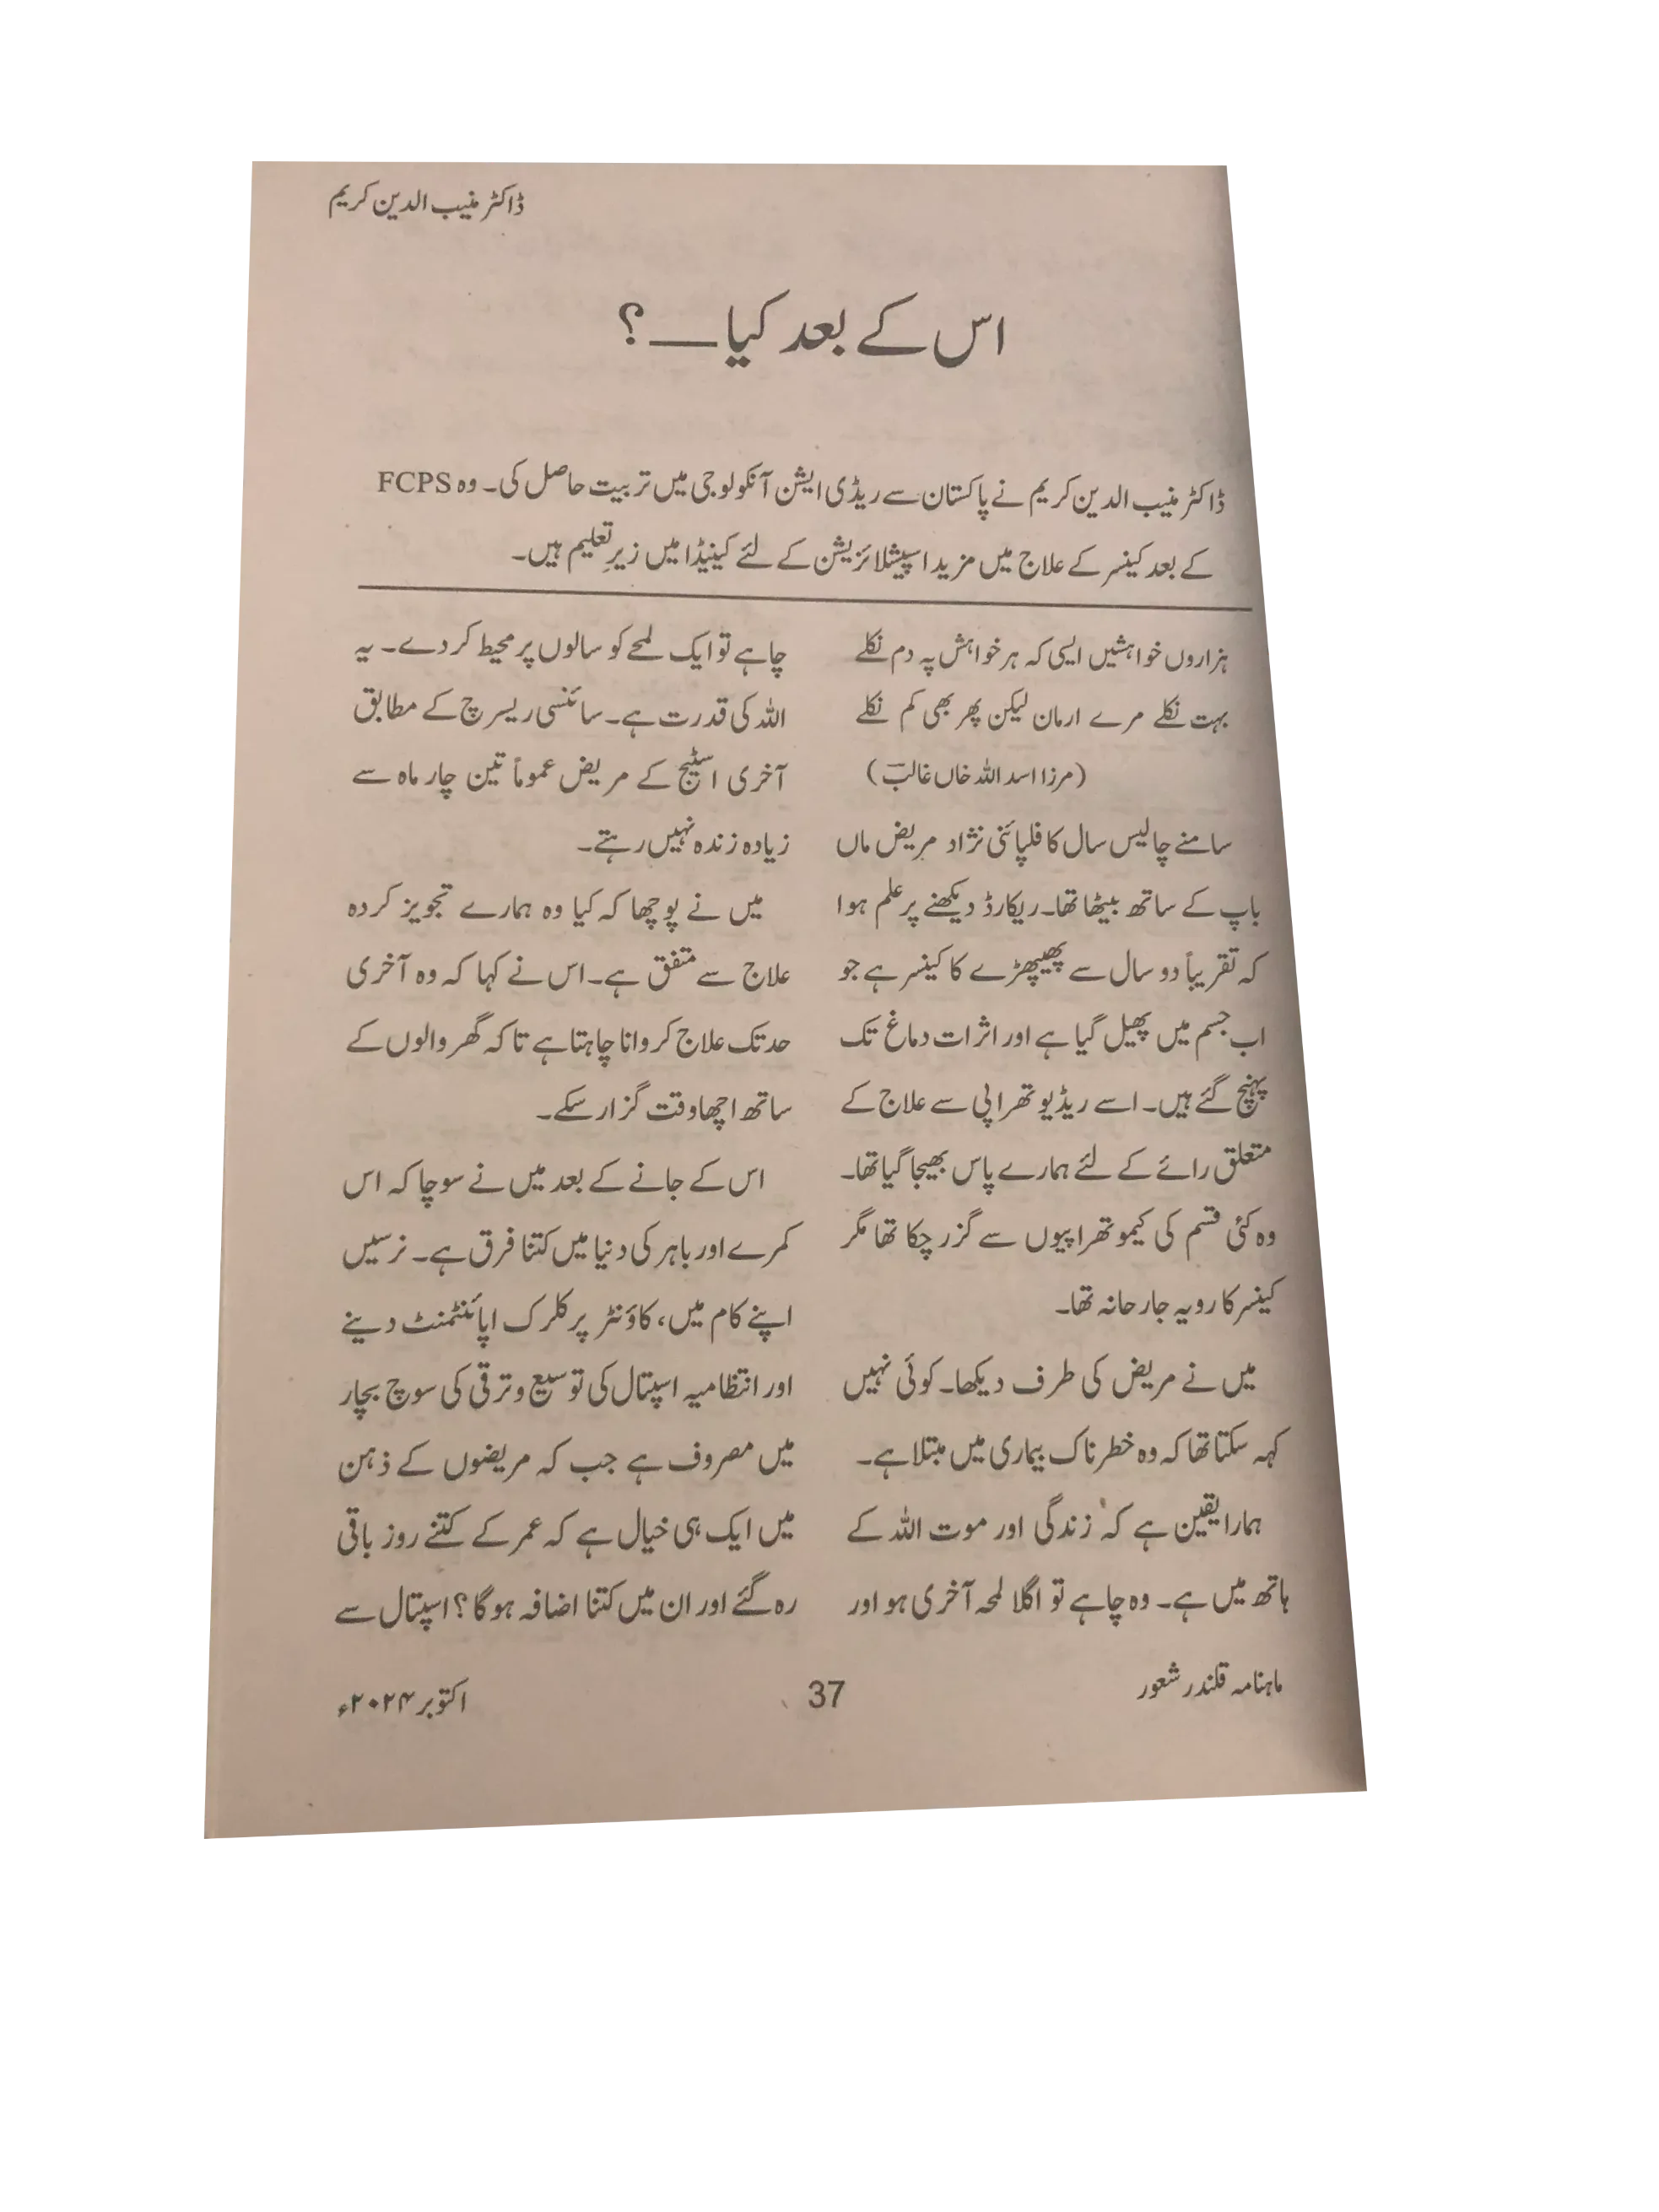 ڈاکٹر منیب الدین کریم
اس کے بعد کیا ـــــ؟
ڈاکٹر منیب الدین کریم نے پاکستان سے ریڈی ایشن آنکولوجی میں تربیت حاصل کی۔ وہ FCPS
کے بعد کینسر کے علاج میں مزید اسپیشلائزیشن کے لئے کینیڈا میں زیرِ تعلیم ہیں۔
ہزاروں خواہشیں ایسی کہ ہر خواہش پہ دم نکلے
بہت نکلے مرے ارمان لیکن پھر بھی کم نکلے
(مرزا اسد اللہ خاں غالبؔ)
سامنے چالیس سال کا فلپائنی نژاد مریض ماں
باپ کے ساتھ بیٹھا تھا۔ ریکارڈ دیکھنے پر علم ہوا
کہ تقریباً دو سال سے پھیپھڑے کا کینسر ہے جو
اب جسم میں پھیل گیا ہے اور اثرات دماغ تک
پہنچ گئے ہیں۔ اسے ریڈیو تھراپی سے علاج کے
متعلق رائے کے لئے ہمارے پاس بھیجا گیا تھا۔
وہ کئی قسم کی کیمو تھراپیوں سے گزر چکا تھا مگر
کینسر کا رویہ جارحانہ تھا۔
میں نے مریض کی طرف دیکھا۔ کوئی نہیں
کہہ سکتا تھا کہ وہ خطرناک بیماری میں مبتلا ہے۔
ہمارا یقین ہے کہ زندگی اور موت اللہ کے
ہاتھ میں ہے۔ وہ چاہے تو اگلا لمحہ آخری ہو اور
چاہے تو ایک لمحے کو سالوں پر محیط کر دے۔ یہ
اللہ کی قدرت ہے۔ سائنسی ریسرچ کے مطابق
آخری اسٹیج کے مریض عموماً تین چار ماہ سے
زیادہ زندہ نہیں رہتے۔
میں نے پوچھا کہ کیا وہ ہمارے تجویز کردہ
علاج سے متفق ہے۔ اس نے کہا کہ وہ آخری
حد تک علاج کروانا چاہتا ہے تاکہ گھر والوں کے
ساتھ اچھا وقت گزار سکے۔
اس کے جانے کے بعد میں نے سوچا کہ اس
کمرے اور باہر کی دنیا میں کتنا فرق ہے۔ نرسیں
اپنے کام میں، کاؤنٹر پر کلرک اپائنٹمنٹ دینے
اور انتظامیہ اسپتال کی توسیع و ترقی کی سوچ بچار
میں مصروف ہے جب کہ مریضوں کے ذہن
میں ایک ہی خیال ہے کہ عمر کے کتنے روز باقی
رہ گئے اور ان میں کتنا اضافہ ہوگا؟ اسپتال سے
ماہنامہ قلندر شعور
37
اکتوبر ۲۰۲۴ء